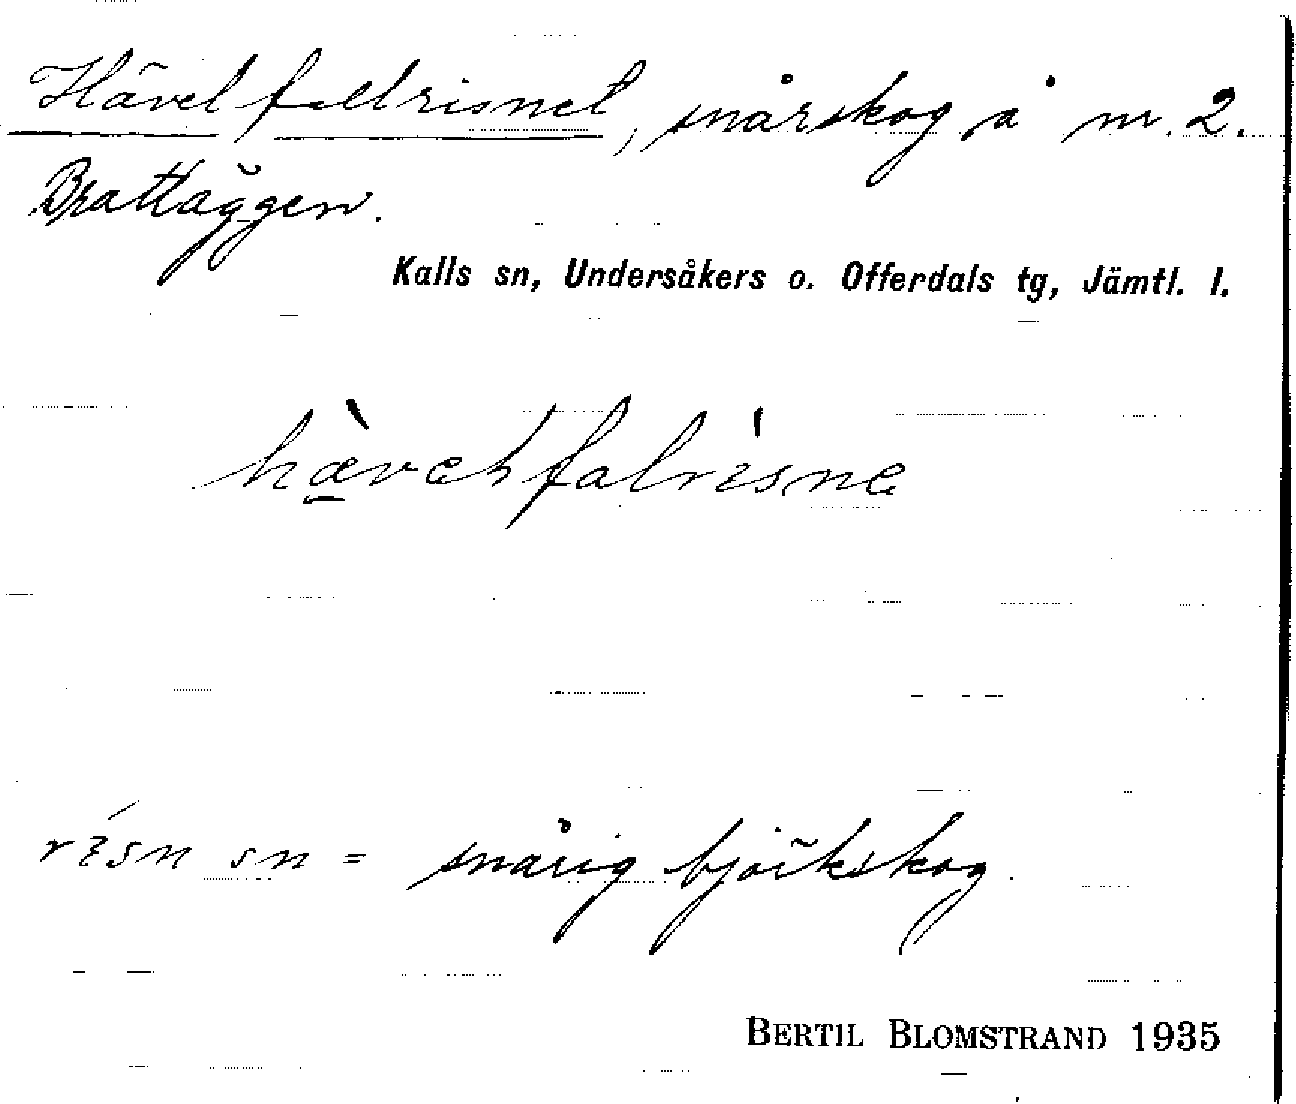 Hävelfallrisnet, snårskog å nr. 2.
Brattäggen.
Kalls sn, Undersåkers o. Offerdals tg, Jämtl. l.
hævelfalrisne
risn sn = snårig björkskog.
BERTIL BLOMSTRAND 1935